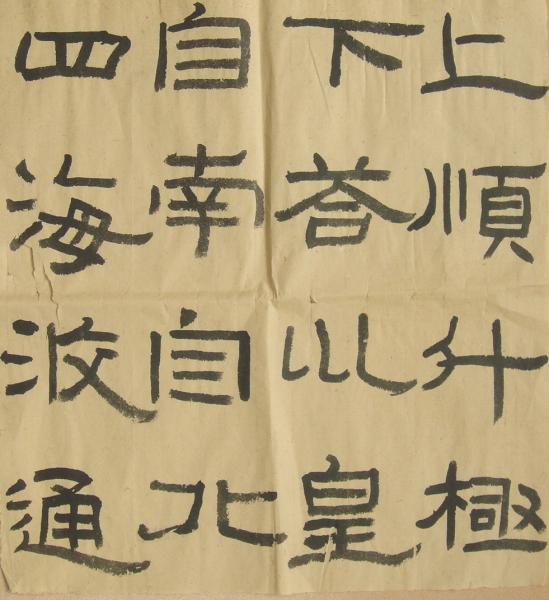 上順斗極
下荅巛皇
自南自北
四海攸通